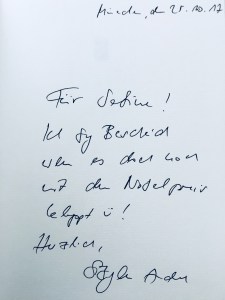 München, den 25.10.17
Für Sabine!
Ich sag Bescheid
wenn es doch noch
mit dem Nobelpreis
geklappt
Herzlich,